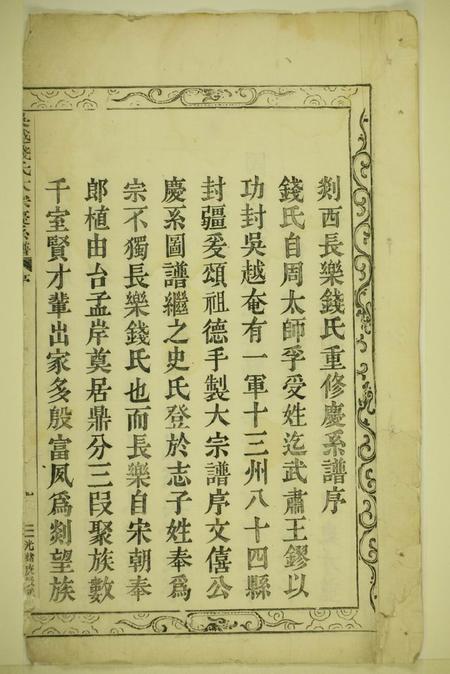 剡西長樂錢氏重修慶系譜序
錢氏自周太師孚受姓迄武肅王鏐以
功封吳越奄有一軍十三州八十四縣
封疆爰頌祖德手製大宗譜序文僖公
慶系圖譜繼之史氏登於志子姓奉爲
宗不獨長樂錢氏也而長樂自宋朝奉
郎植由台孟岸奠居鼎分三段聚族數
千室賢才輩出家多殷富夙爲剡望族
越錢氏
譜 序
光緒